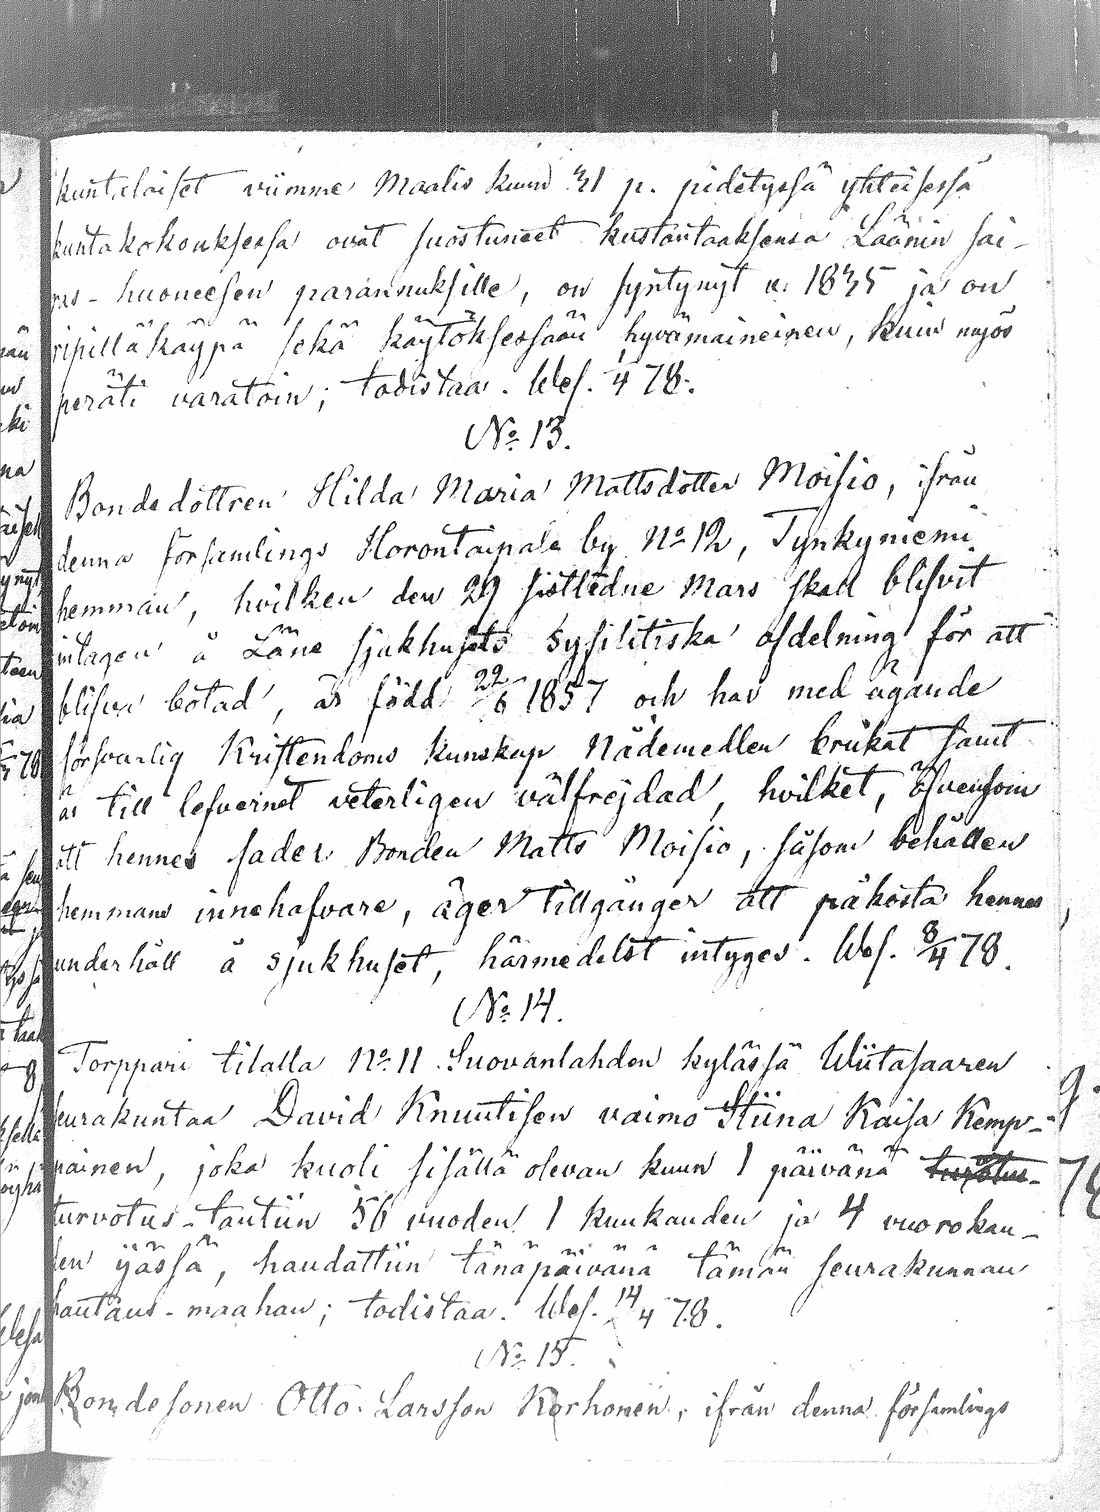 kuntalaiset viimme Maalis kuun 31 p. pidetyssä yhteisessä
kuntakokouksessa ovat suostuneet kustantaaksensa Läänin sai-
ras-huoneesen parannuksille, on syntynyt v. 1835 ja on
ripilläkäypä sekä käytöksessään hyvämaineinen, kuin myös
peräti varatoin; todistaa. Wes. 4 78.
No 13.
Bondedottren Hilda Maria Mattsdotter Moisio, ifrån
denna församlings Horontaipale by No 12, Tynkyniemi
hemman, hvilken den 29 sistledne Mars skall blifvit
intagen å Läne sjukhusets syfilitiska afdelning för att
blifva botad, är född 22/6 1857 och har med ägande
försvarlig Kristendoms kunskap Nådemedlen brukat samt
är till lefvernet veterligen välfrejdad, hvilket, äfvensom
att hennes fader Bonden Matts Moisio, såsom behållen
hemmans innehafvare, äger tillgånger att påkosta hennes
underhåll å sjukhuset, härmedelst intyges. Wes. 8/4 78.
No 14.
Torppari tilalla No 11 Suovanlahden kylässä Wiitasaaren
seurakuntaa David Knuutisen vaimo Stiina Kaisa Kemp-
painen, joka kuoli sisällä olevan kuun 1 päivänä
turvotus-tautiin 56 vuoden 1 kuukauden ja 4 vuorokau-
den ijässä, haudattiin tänäpäivänä tämän seurakunnan
hautaus-maahan; todistaa. Wes. 14/4 78.
No 15.
Bondesonen Otto Larsson Korhonen, ifrån denna församlings